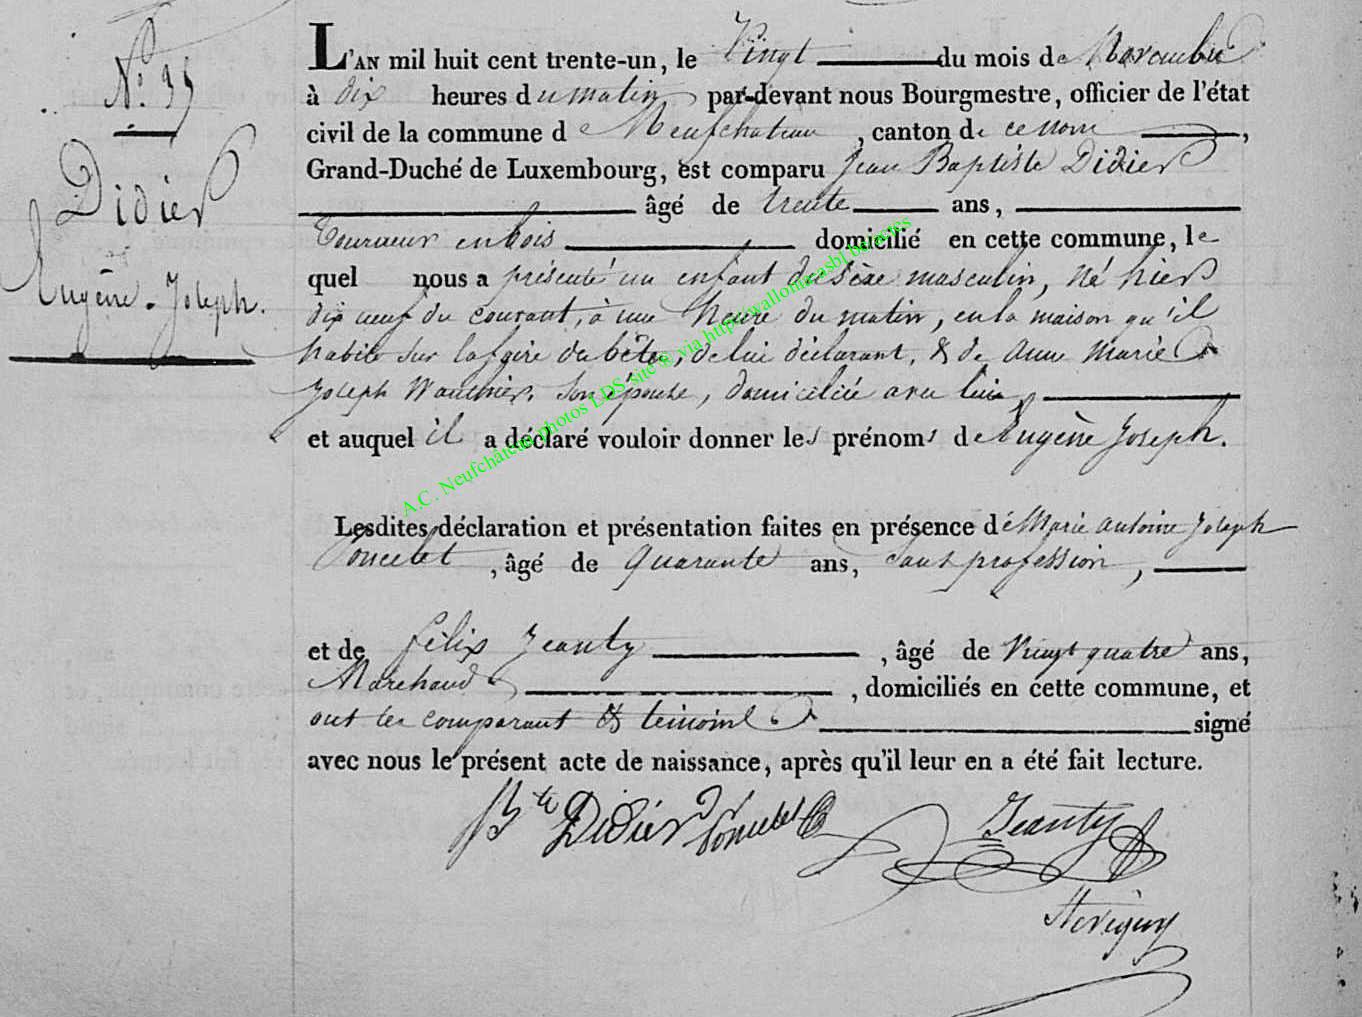 N.° 39
Didier
Eugène-Joseph.
L'AN mil huit cent trente-un, le Vingt du mois de Novembre
à dix heures du matin par-devant nous Bourgmestre, officier de l'état
civil de la commune de Neufchateau, canton de ce nom,
Grand-Duché de Luxembourg, est comparu Jean Baptiste Didier
âgé de trente ans,
Tourneur en bois domicilié en cette commune, le
quel nous a présenté un enfant du sèxe masculin, né hier
dix neuf du courant, à une heure du matin, en la maison qu'il
habite sur la foire du bêtes, de lui déclarant, & de Anne Marie
Joseph Wauthier, son épouse, domiciliée avec lui
et auquel il a déclaré vouloir donner les prénoms de Eugène Joseph.
Lesdites déclaration et présentation faites en présence de Marie Antoine Joseph
Poncelet, âgé de quarante ans, sans profession,
et de félix Jeanty, âgé de Vingt quatre ans,
Marchand, domiciliés en cette commune, et
ont les comparant & témoins signé
avec nous le présent acte de naissance, après qu'il leur en a été fait lecture.
JBte Didier Poncelet Jeanty
A.C. Neufchâteau photos LDS site © via http://wallonia-asbl.be/actes